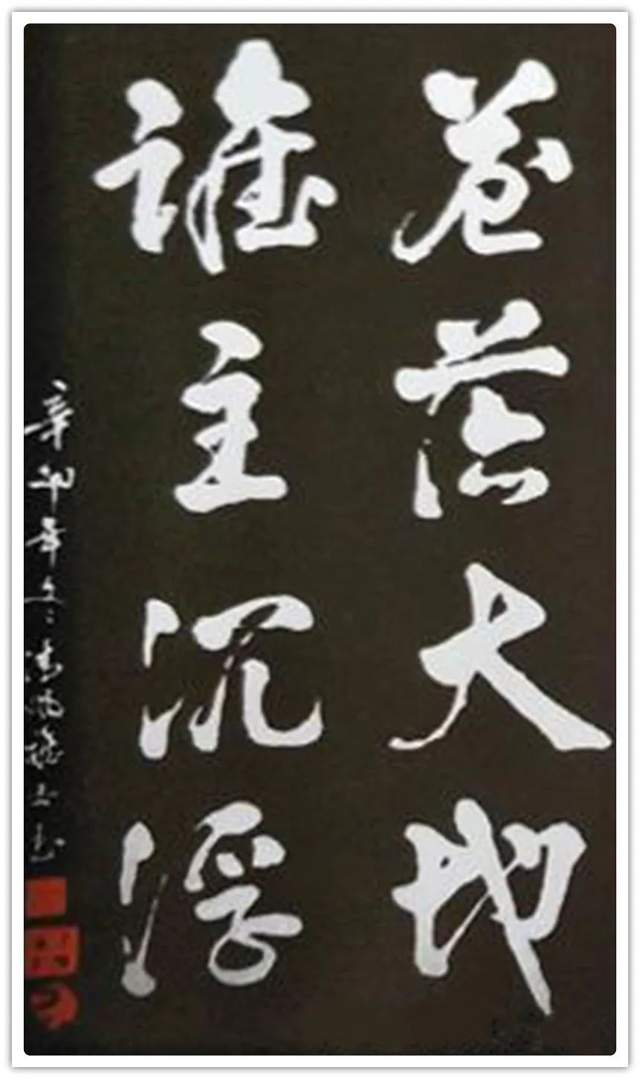 苍茫大地
谁主沉浮
辛卯年冬